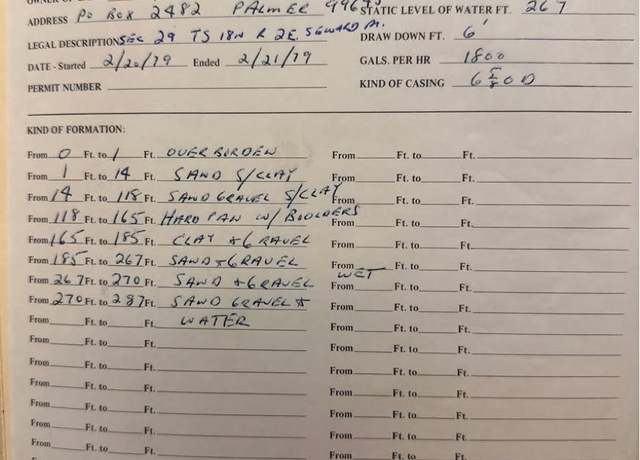 ADDRESS Po Box 2482 PALMER STATIC LEVEL OF WATER FT. 267
LEGAL DESCRIPTION SEC 29 TS 18N R 2E, SEWARD M. DRAW DOWN FT. 6'
DATE - Started 2/20/79 Ended 2/21/79 GALS. PER HR 1800
PERMIT NUMBER KIND OF CASING 6 5/8 OD
KIND OF FORMATION:
From 0 Ft. to 1 Ft. OVER BURDEN From Ft. to Ft.
From 1 Ft. to 14 Ft. SAND S/CLAY From Ft. to Ft.
From 14 Ft. to 118 Ft. SAND GRAVEL S/CLAY From Ft. to Ft.
From 118 Ft. to 165 Ft. HARD PAN W/ BOULDERS From Ft. to Ft.
From 165 Ft. to 185 Ft. CLAY & GRAVEL From Ft. to Ft.
From 185 Ft. to 267 Ft. SAND & GRAVEL From Ft. to Ft.
From 267 Ft. to 270 Ft. SAND & GRAVEL WET From Ft. to Ft.
From 270 Ft. to 287 Ft. SAND GRAVEL & From Ft. to Ft.
From Ft. to Ft. WATER From Ft. to Ft.
From Ft. to Ft. From Ft. to Ft.
From Ft. to Ft. From Ft. to Ft.
From Ft. to Ft. From Ft. to Ft.
From Ft. to Ft. From Ft. to Ft.
From Ft. to Ft. From Ft. to Ft.
From Ft. to Ft. From Ft. to Ft.